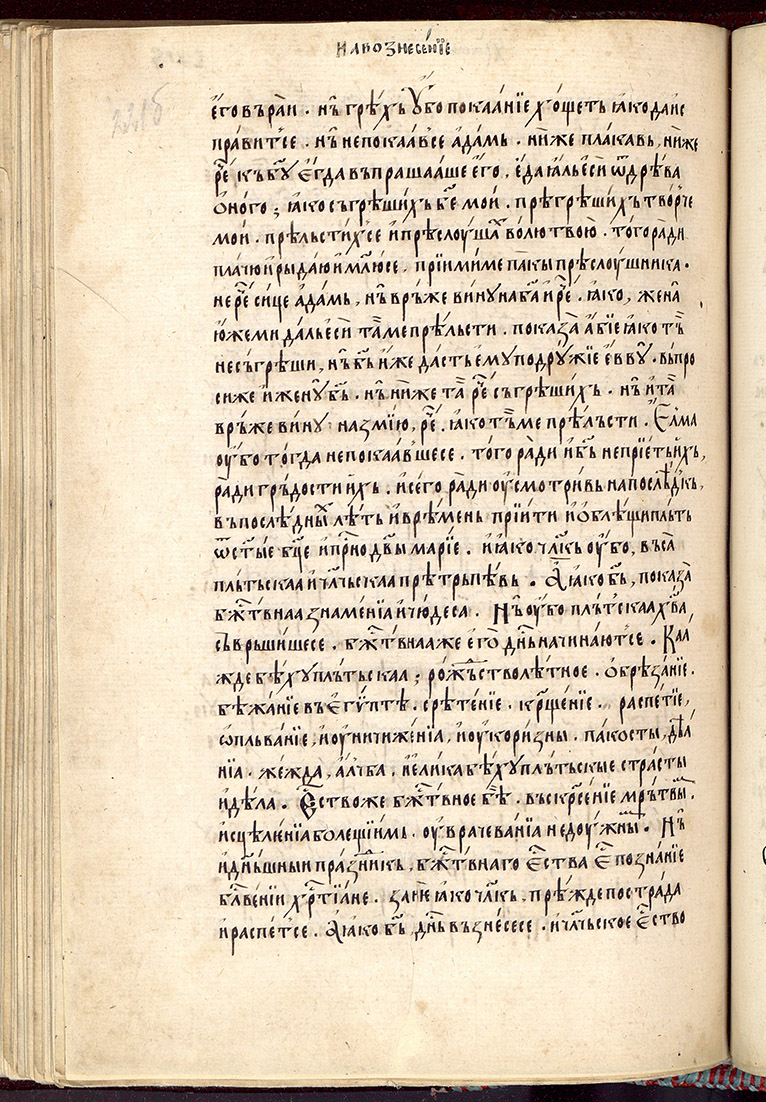 на вознесенїе
его въ раи . нь грѣхь ѹбо покаанїе хощеть ꙗко да ис
правитсе . нь не покаавсе адамь . ниже плакавь , ниже
рⷱе къ бꙋ егда въпрашааше его , еда ꙗль еси ѿ дрѣва
оного ; ꙗко съгрѣшихь бже мои . прѣгрѣшихь творче
мои . прѣльстихсе и прѣслоушах волю твою . того ради
плачю и рыдаю и млюсе . прїими ме пакы прѣслоушника .
не рⷱе сице адамь , нь врьже винꙋ на ба и рⷱе . ꙗко , жена
юже ми даль еси та ме прѣльсти . показа абїе ꙗко ть
не съгрѣши , нь бь иже дасть емꙋ подрꙋжїе еввꙋ . въпро
сиже и женꙋ бь . нь ниже та рⷱе съгрѣшихь . нь и та
врьже винꙋ на змїю , рⷱе . ꙗко тьме прѣлъсти . Елма
оубо тогда не покаавшесе . того ради и бь не прїеть ихь ,
ради грьдости ихь . и сего ради оусмотривь на послѣдкь ,
въ послѣдных лѣть и врѣмень прїити и облѣщи пльть
ѿ стые бце и прⷭно двы марїе . и ꙗко члкь оубо , въса
пльтьскаа и члчьскаа прѣтрьпѣвь . А ꙗко бь , показа
бжⷭтвнаа знаменїа и чюдеса . Нь оубо пльтскаа хва
съврьшишесе . бжⷭтвнаа же его дньⷭ начинаютсе . Каа
жде бѣхꙋ пльтьскаа ; рожⷣьство лѣтное . обрѣзанїе .
бѣжанїе въ егѵптѣ . срѣтенїе . крⷳщенїе . распетїе ,
ѡплъванїе , и оуничиженїа , и оукоризны . пакосты , дѣа
нїа . жежда , алчба , и елика бѣхꙋ пльтьскые страсты
и дѣла . Еⷭство же бжⷭтвное бѣ . въскрⷭсенїе мрьтвым .
исцѣленїа болещїимь . оуврачеванїа недоужным . Нь
и дньⷭшныи праздникь , бжⷭтвнаго еⷭства еⷭ познанїе
блⷭвенїи хрⷭтїане . зане ꙗко члкь , прѣжде пострада
и распетсе . А ꙗко бь днⷭь възнесесе . и члчьское еⷭство